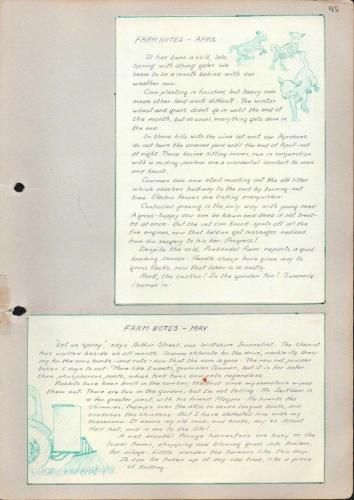 98
FARM NOTES - APRIL
It has been a cold, late,
spring with strong gales. We
seem to be a month behind with our
weather now.
Corn planting is finished, but heavy rain
made other land work difficult. The winter
wheat and grass didn't go in until the end of
the month, but as usual, everything gets done in
the end.
On these hills with the wind set east our Ayrshires
do not leave the covered yard until the end of April - not
at night. Those bovine sitting rooms, run in conjunction
with a milking parlour are a wonderful comfort to man
and beast.
Cowmen can now start mucking out the old litter
which reaches halfway to the roof by turning-out
time. Electric fences are ticking everywhere.
Controlled grazing is the only way with young keep.
A grass-happy cow can be blown and dead if not treat-
ed at once. But the vet can knock spots off all the
fire engines, now that he can get messages radioed
from his surgery to his car. Progress!
Despite the cold, Prebendal Farm reports a good
lambing season. Hurdle sheep have given way to
grass flocks, now that labour is so costly.
Hark, the cuckoo! In the garden too! Summer's
i'comen in.
FARM NOTES - MAY
"Let us spray," says Arthur Street, our Wiltshire Journalist. The chemist
has walked beside us all month. Sodium chlorate for the drive, warble-fly dress-
ing for the cows' backs - and rats - now that the corn is gone. The new rat powder
takes 5 days to act. "More like sweets," grumbles Cowman, but it is far safer
than phosphorous paste, which took hens and cats regardless.
Rabbits have been back in the combe, the first since myxamatosis wiped
them out. There are two in the garden, but I'm not telling. Mr. Jackdaw is
a far greater pest, with his friend Magpie. He haunts the
chimneys, tramps over the attic in seven league boots, and
snatches the chicks. But I have defeated him with my
scarecrow. It wears my old mac, and boots, my ex Albert
Hall hat, and is me to the life!
A wet month! Forage harvesters are busy on the
lower farms, chopping and blowing grass into trailers
for silage. Little wonder the farmers like this crop.
It can be taken up at any odd time, like a piece
of knitting.